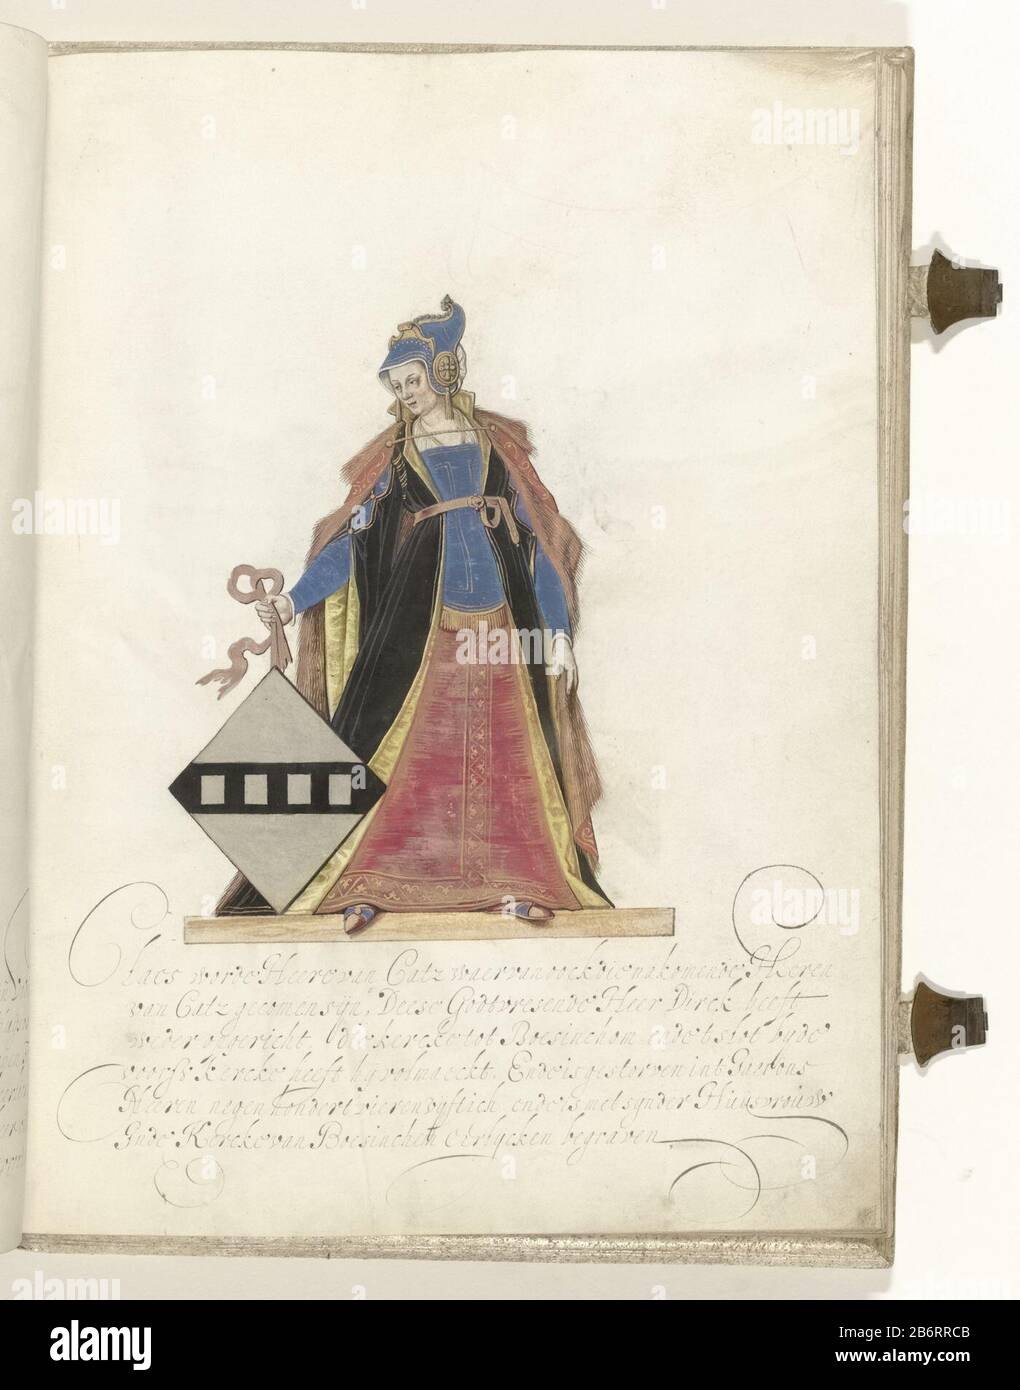 Claes worde Heere van Catz waer van oock die nakomende Heeren
van Catz gecomen sijn, Deese Godtvresende Heer Dirck heeft
weder opgericht, die kercke tot Boesinchom ende t slot by de
voorss Kercke heeft hy volmaeckt. Ende is gestorven int Jaer ons
Heeren negen hondert vierenvyftich, ende is met synder Huysvrouw
Inde Kercke van Boesinchem eerlycken begraven
alamy
Image ID: 2B6RRCB
www.alamy.com